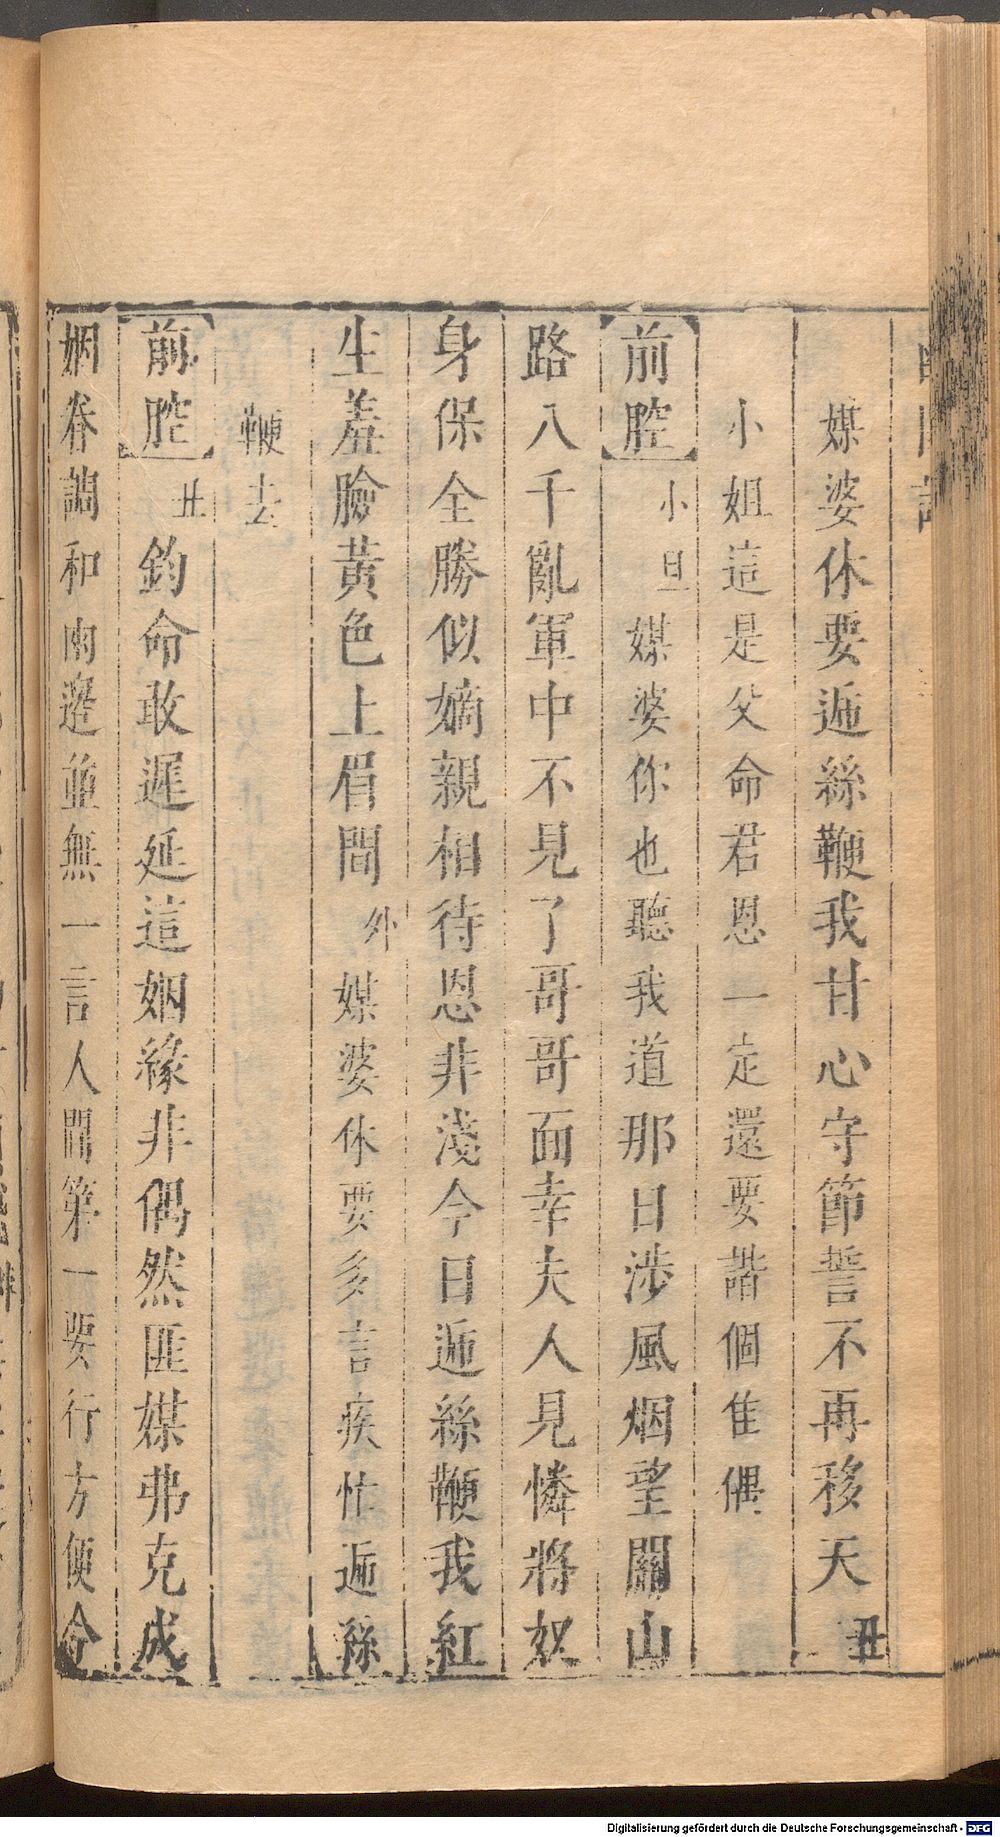 媒婆休要逓絲鞭我甘心守節誓不再移天丑
小姐這是父命君恩一定還要諧個隹偶
前腔小旦媒婆你也聽我道那日涉風烟望關山
路八千亂軍中不見了哥哥面幸夫人見憐將奴
身保全勝似嫡親相待恩非淺今日逓絲鞭我紅
生羞臉黃色上眉間外媒婆休要多言疾忙逓絲
鞭去
前腔丑鈞命敢遲延這姻緣非偶然匪媒弗克成
姻眷調和兩邉並無一言人間第一要行方便令
Digitalisierung gefördert durch die Deutsche Forschungsgemeinschaft - DFG